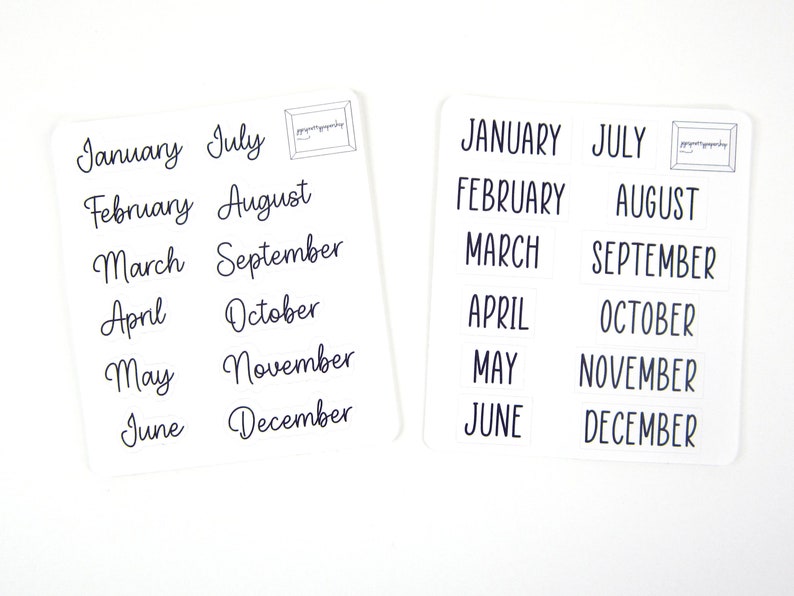 January July
gigisprettypapershop
February August
March September
April October
May November
June December
JANUARY JULY
gigisprettypapershop
FEBRUARY AUGUST
MARCH SEPTEMBER
APRIL OCTOBER
MAY NOVEMBER
JUNE DECEMBER